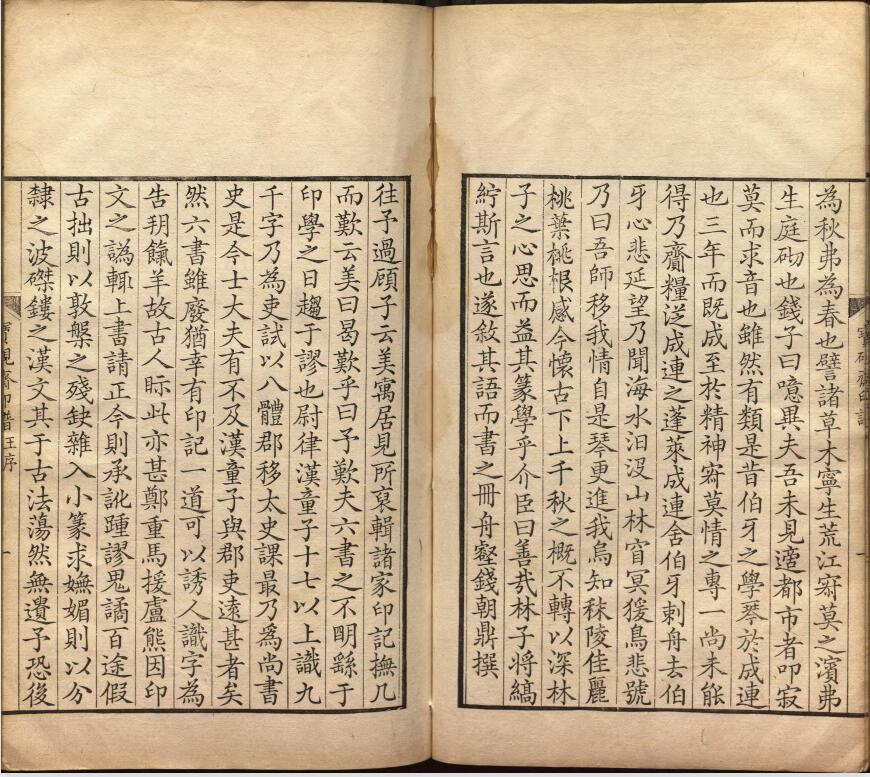 為秋弗為春也譬諸草木寧生荒江㝥莫之濱弗
生庭砌也錢子曰噫異夫吾未見適都市者叩寂
莫而求音也雖然有類是昔伯牙之學琴於成連
也三年而既成至於精神㝥莫情之專一尚未能
得乃齎糧從成連之蓬萊成連舍伯牙刺舟去伯
牙心悲延望乃聞海水汩沒山林窅冥猨鳥悲號
乃曰吾師移我情自是琴更進我烏知秣陵佳麗
桃葉桃根感今懷古下上千秋之概不轉以深林
子之心思而益其篆學乎介臣曰善哉林子將縞
紵斯言也遂敘其語而書之冊舟壑錢朝鼎撰
往予過顧子云美寓居見所裒輯諸家印記撫几
而歎云美曰曷歎乎曰予歎夫六書之不明繇于
印學之日趨于謬也尉律漢童子十七以上識九
千字乃為吏試以八體郡移太史課最乃為尚書
史是今士大夫有不及漢童子與郡吏遠甚者矣
然六書雖廢猶幸有印記一道可以誘人識字為
告朔餼羊故古人眎此亦甚鄭重馬援盧熊因印
文之譌輒上書請正今則承訛踵謬鬼譎百途假
古拙則以敦槃之殘缺雜入小篆求嫵媚則以分
隸之波磔鏤之漢文其于古法蕩然無遺予恐後